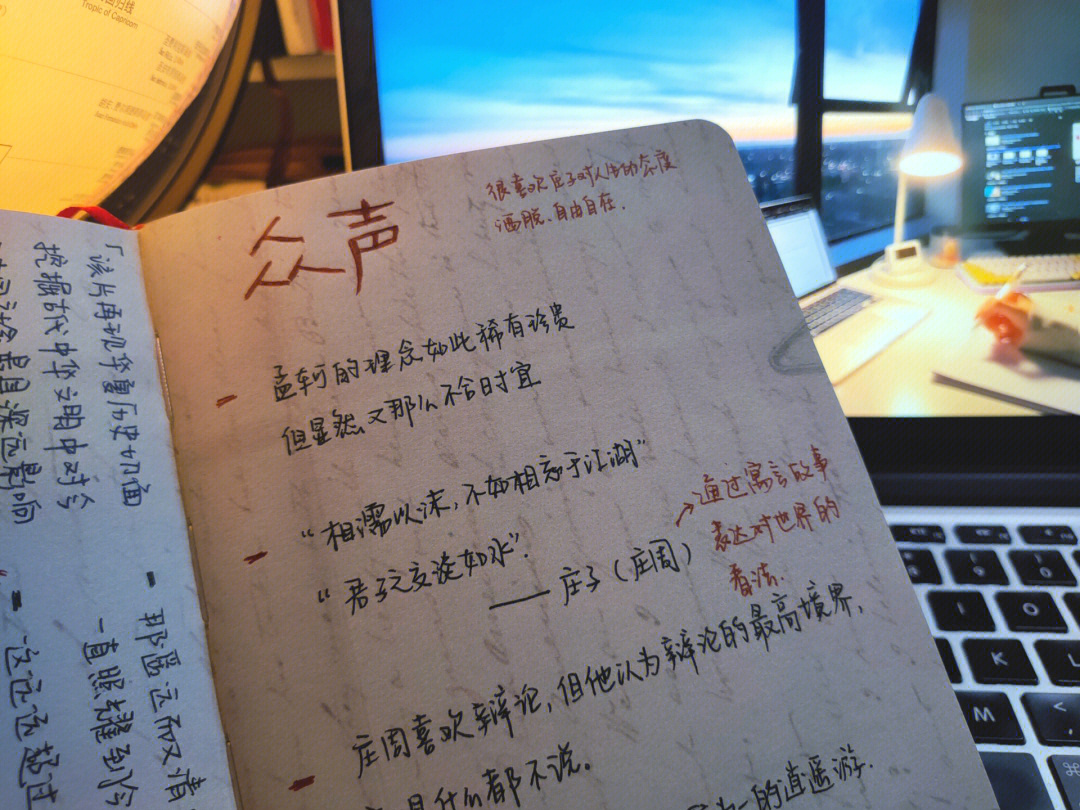 Tropic of Capricorn
众声
很喜欢庄子对人生的态度
洒脱、自由自在.
孟轲的理念如此稀有珍贵
但显然又那么不合时宜
“相濡以沫,不如相忘于江湖”
“君子之交淡如水”.
—— 庄子（庄周）
通过寓言故事
表达对世界的
看法.
庄周喜欢辩论,但他认为辩论的最高境界,
是什么都不说.
的逍遥游.
「该片再现华夏历史切面
挖掘古代中华文明中对今
最具深远影响
- 那遥远而又清
一直照耀到今
- 这远远超过
I
O
K
L
M